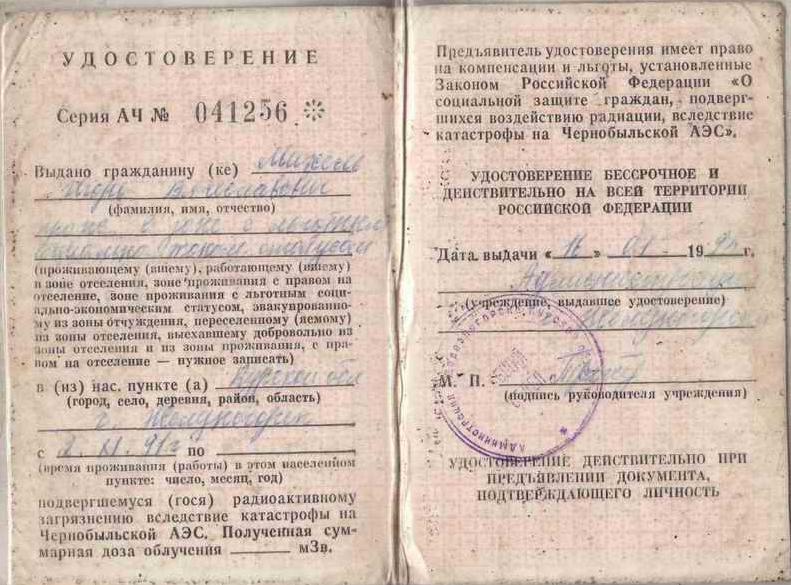 УДОСТОВЕРЕНИЕ
Серия АЧ № 041256
Выдано гражданину (ке) Михель
Игорь Вячеславович
(фамилия, имя, отчество)
прож. в зоне с льготным
социально-эконом. статусом
(проживающему (вшему), работающему (вшему)
в зоне отселения, зоне проживания с правом на
отселение, зоне проживания с льготным соци-
ально-экономическим статусом, эвакуированно-
му из зоны отчуждения, переселенному (яемому)
из зоны отселения, выехавшему добровольно из
зоны отселения и из зоны проживания, с пра-
вом на отселение — нужное записать)
в (из) нас. пункте (а) Курской обл
(город, село, деревня, район, область)
г. Железногорск
с 2. XI. 91г по
(время проживания (работы) в этом населенном
пункте: число, месяц, год)
подвергшемуся (гося) радиоактивному
загрязнению вследствие катастрофы на
Чернобыльской АЭС. Полученная сум-
марная доза облучения мЗв.
Предъявитель удостоверения имеет право
на компенсации и льготы, установленные
Законом Российской Федерации «О
социальной защите граждан, подверг-
шихся воздействию радиации, вследствие
катастрофы на Чернобыльской АЭС».
УДОСТОВЕРЕНИЕ БЕССРОЧНОЕ И
ДЕЙСТВИТЕЛЬНО НА ВСЕЙ ТЕРРИТОРИИ
РОССИЙСКОЙ ФЕДЕРАЦИИ
Дата выдачи « » 01 19 г.
Администрация
(учреждение, выдавшее удостоверение)
Железногорск
М. П.
(подпись руководителя учреждения)
УДОСТОВЕРЕНИЕ ДЕЙСТВИТЕЛЬНО ПРИ
ПРЕДЪЯВЛЕНИИ ДОКУМЕНТА,
ПОДТВЕРЖДАЮЩЕГО ЛИЧНОСТЬ